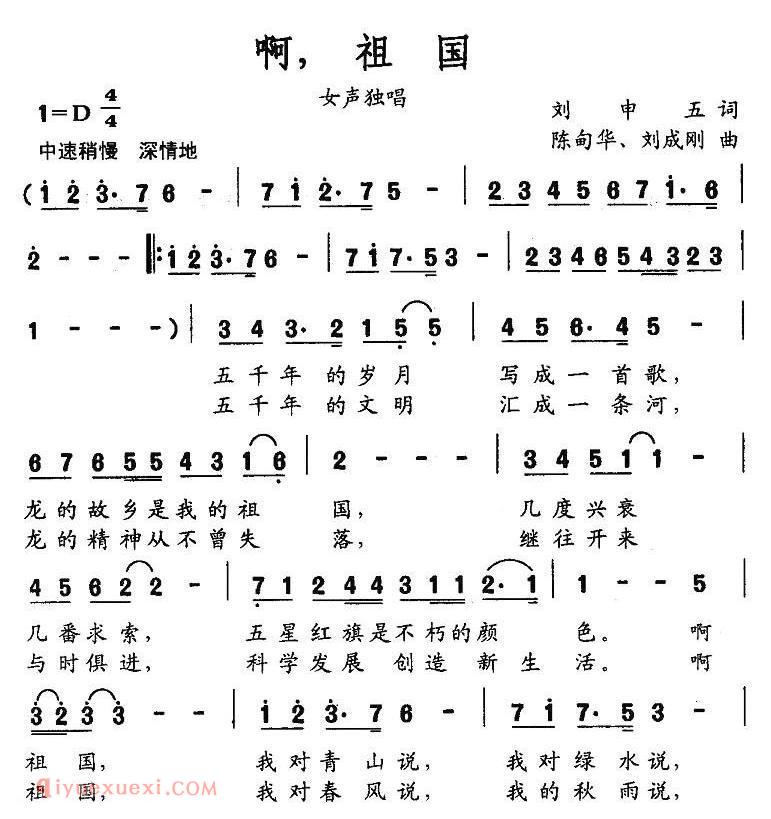 啊，祖国
女声独唱
1=D 4/4
刘申五 词
中速稍慢 深情地
陈甸华、刘成刚 曲
(1 2 3· 7 6 - | 7 1 2· 7 5 - | 2 3 4 5 6 7 1· 6 |
2 - - - ‖: 1 2 3· 7 6 - | 7 1 7· 5 3 - | 2 3 4 6 5 4 3 2 3 |
1 - - - ) | 3 4 3· 2 1 5 5 | 4 5 6· 4 5 - |
五千年 的岁月 写成一首歌，
五千年 的文明 汇成一条河，
6 7 6 5 5 4 3 1 6 | 2 - - - | 3 4 5 1 1 - |
龙的故乡是我的祖 国， 几度兴衰
龙的精神从不曾失 落， 继往开来
4 5 6 2 2 - | 7 1 2 4 4 3 1 1 2· 1 | 1 - - 5 |
几番求索， 五星红旗是不朽的颜 色。 啊
与时俱进， 科学发展 创造 新生 活。 啊
3 2 3 3 - - | 1 2 3· 7 6 - | 7 1 7· 5 3 - |
祖 国， 我对青山说， 我对绿水说，
祖 国， 我对春风说， 我的秋雨说，
qiyuexuexi.com(器乐学习网)